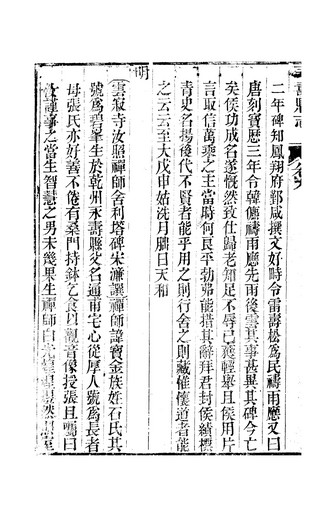 二年碑知鳳翔府郭咸撰文好畤令雷壽松為民禱雨應又曰
唐刻寶歷三年令韓儲禱雨應先雨後雲其事甚異其碑今亡
矣侯功成名遂慨然致仕歸老知足不辱已莵輕舉且侯用片
言取信萬乘之主當時何良平勃弗能措其辭拜君封侯績標
青史名揚後代不賢者能乎用之則行舍之則藏惟懷道者能
之云云至大戊申姑洗月朧日天和
明
雲寂寺汝照禪師舍利塔碑宋濂譔禪師諱寶金族姓石氏其
號為碧峯生於乾州永壽縣父名通甫宅心從厚人號為長者
母張氏亦好善不倦有桑門持鉢乞食以觀音像授張且囑曰
謹事之當生智慧之男未幾果生禪師白光